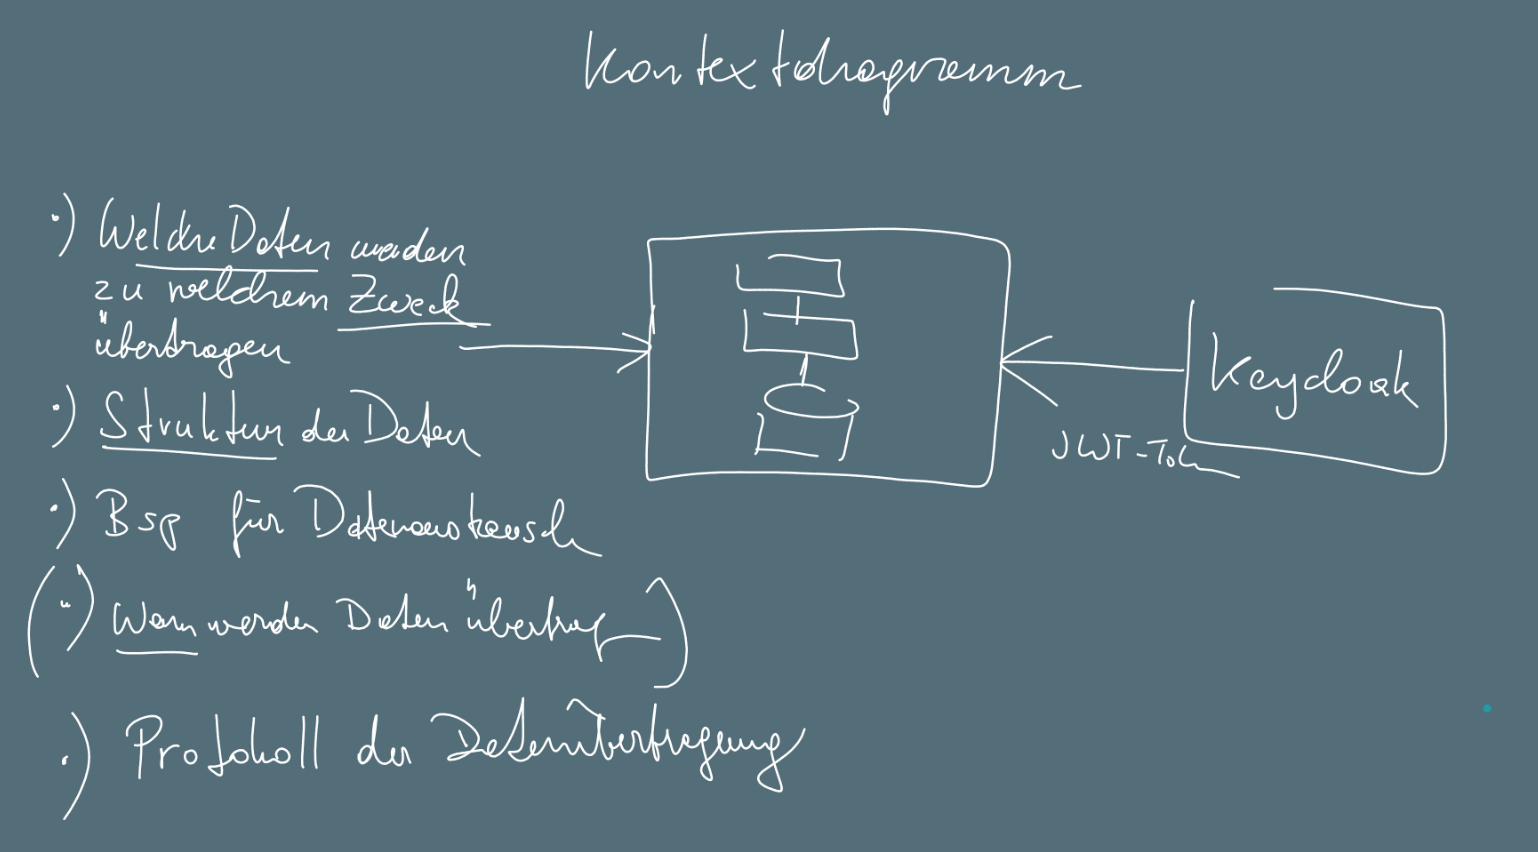 Kontextdiagramm
·) Welche Daten werden
zu welchem Zweck
übertragen
·) Struktur der Daten
·) Bsp für Datenaustausch
(·) Wann werden Daten übertrag)
·) Protokoll der Datenübertragung
Keycloak
JWT-Token